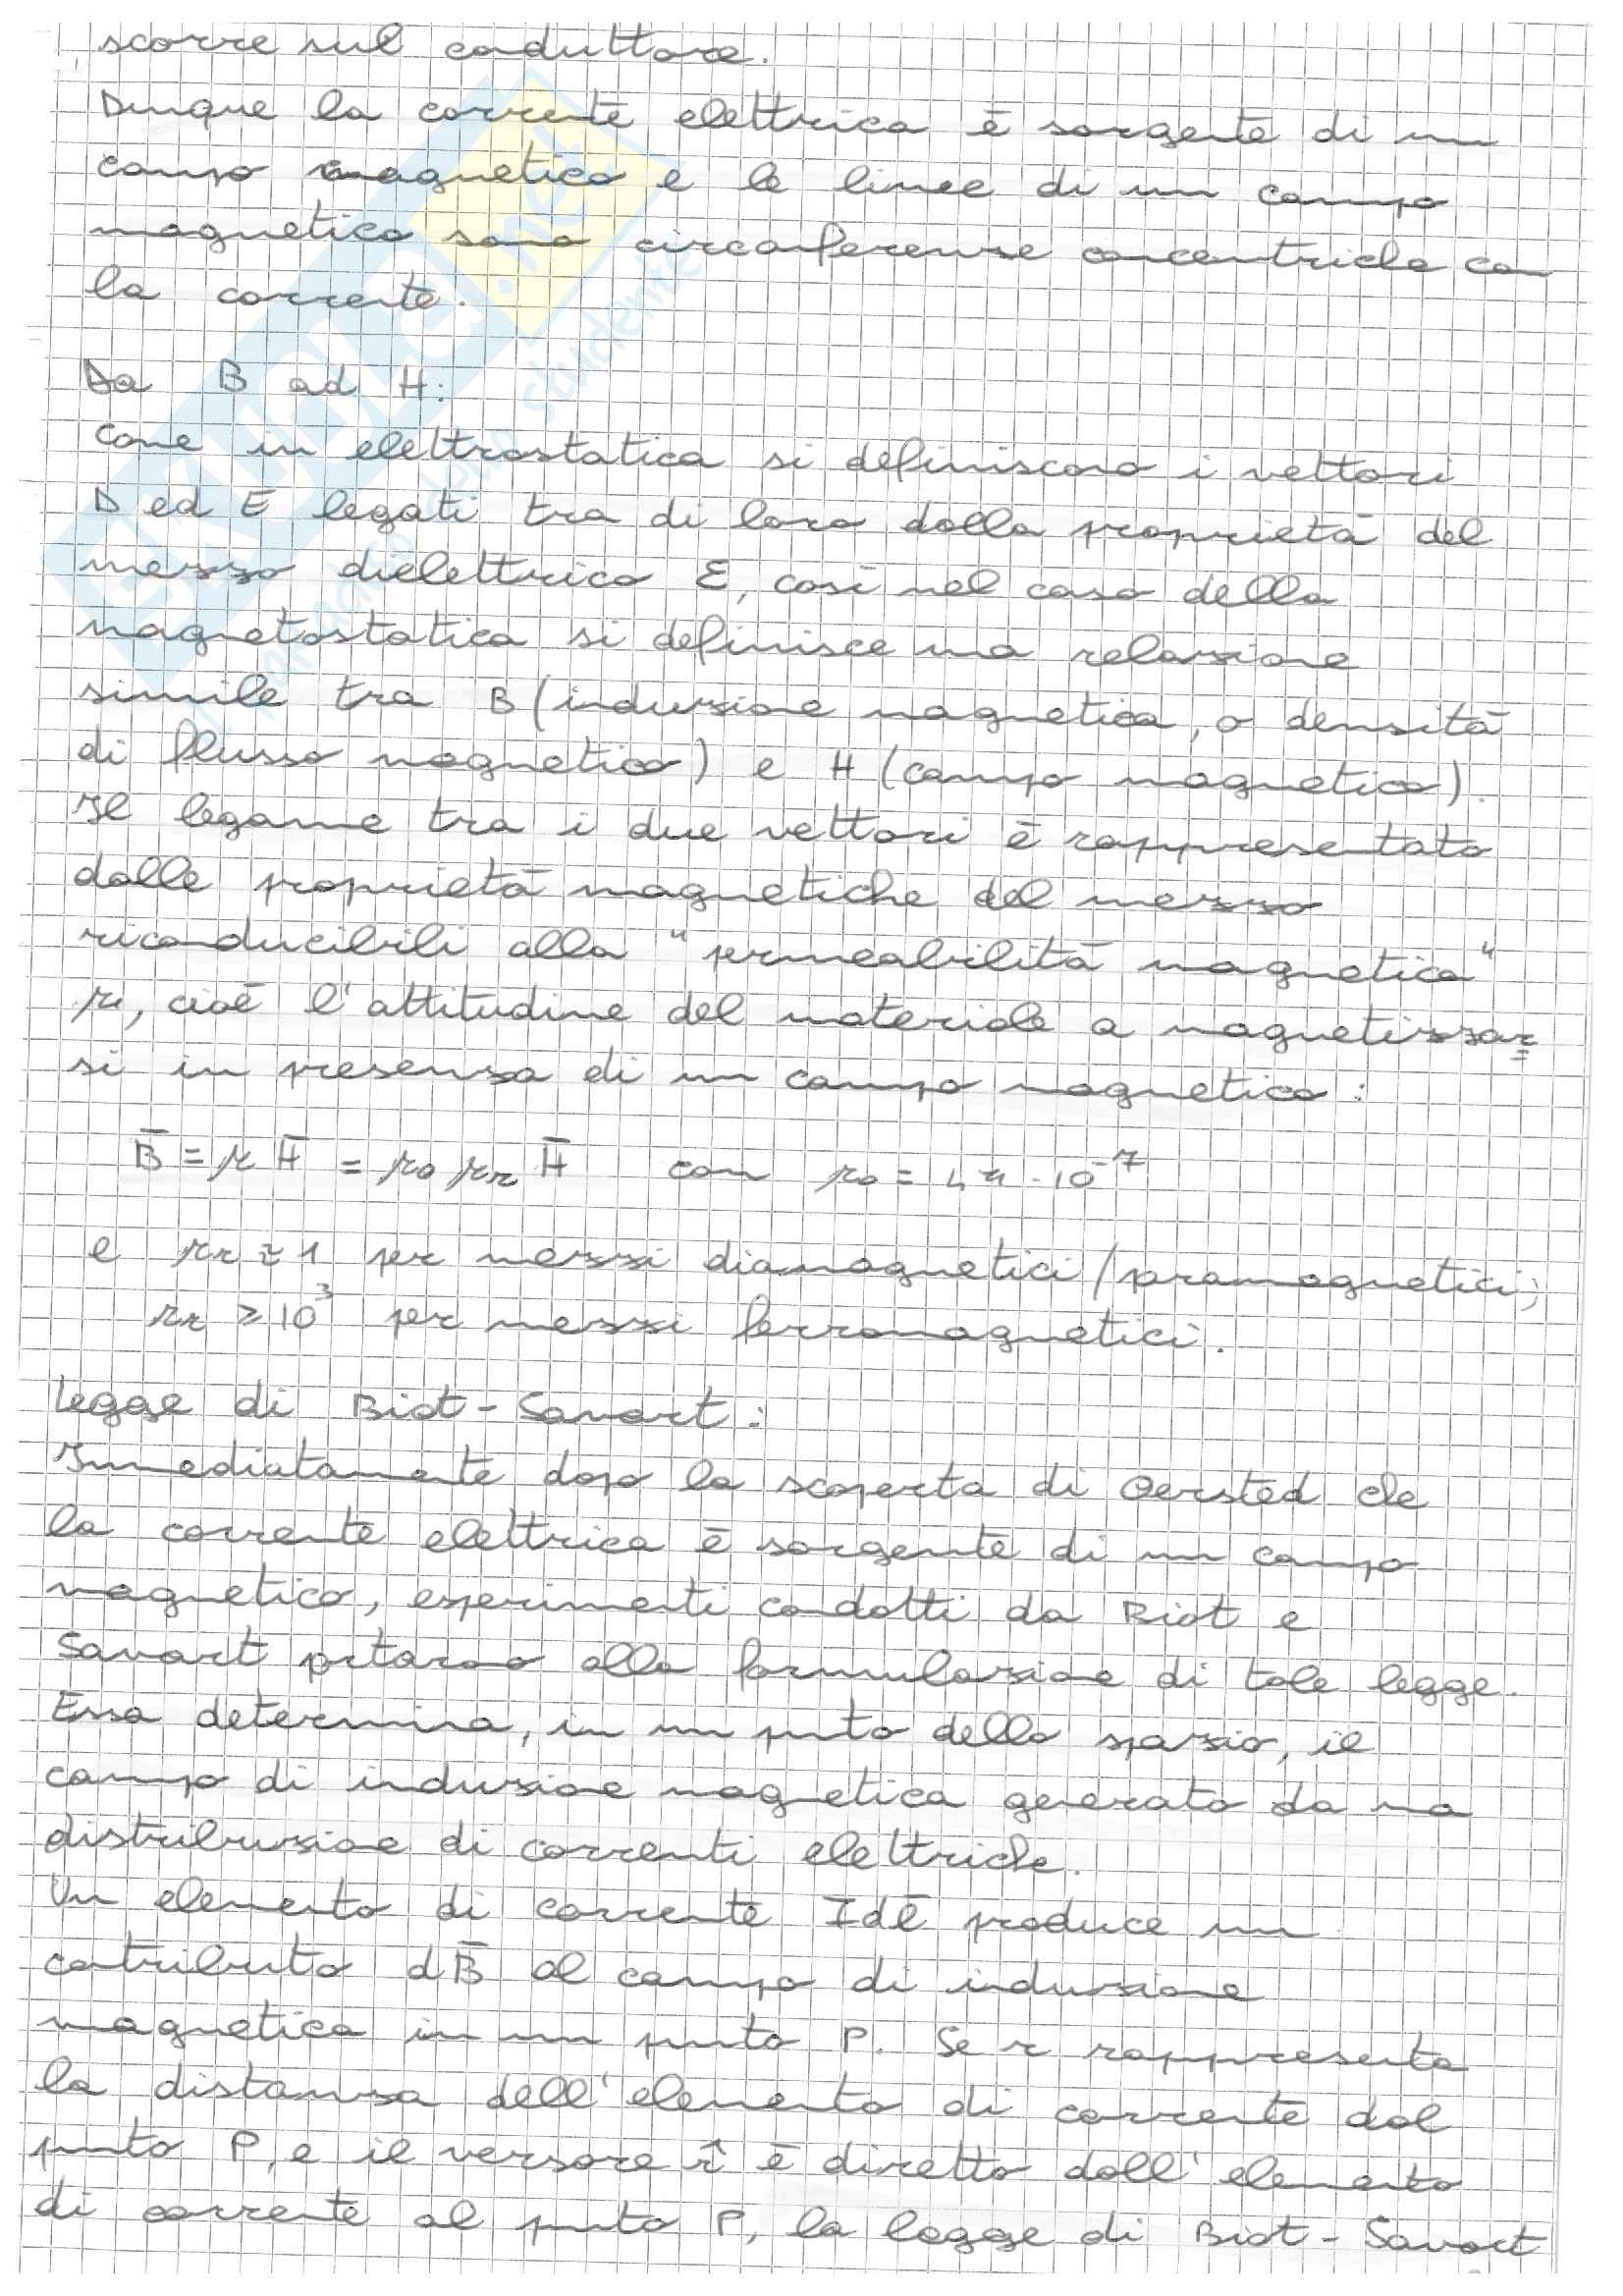 scorre sul conduttore.
Dunque la corrente elettrica è sorgente di un
campo magnetico e le linee di un campo
magnetico sono circonferenze concentriche con
la corrente.
Da B ad H:
Come in elettrostatica si definiscono i vettori
D ed E legati tra di loro dalla proprietà del
mezzo dielettrico ε, così nel caso della
magnetostatica si definisce una relazione
simile tra B (induzione magnetica, o densità
di flusso magnetico) e H (campo magnetico).
Il legame tra i due vettori è rappresentato
dalle proprietà magnetiche del mezzo
riconducibili alla "permeabilità magnetica"
μ, cioè l'attitudine del materiale a magnetizzar=
si in presenza di un campo magnetico:
B̄ = μ H̄ = μ0 μr H̄ con μ0 = 4π · 10⁻⁷
e μr ≈ 1 per mezzi diamagnetici/paramagnetici;
μr ≥ 10³ per mezzi ferromagnetici.
Legge di Biot-Savart:
Immediatamente dopo la scoperta di Oersted che
la corrente elettrica è sorgente di un campo
magnetico, esperimenti condotti da Biot e
Savart portarono alla formulazione di tale legge.
Essa determina, in un punto dello spazio, il
campo di induzione magnetica generato da una
distribuzione di correnti elettriche.
Un elemento di corrente Idl̄ produce un
contributo dB̄ al campo di induzione
magnetica in un punto P. Se r rappresenta
la distanza dell'elemento di corrente dal
punto P, e il versore r̂ è diretto dall'elemento
di corrente al punto P, la legge di Biot-Savart